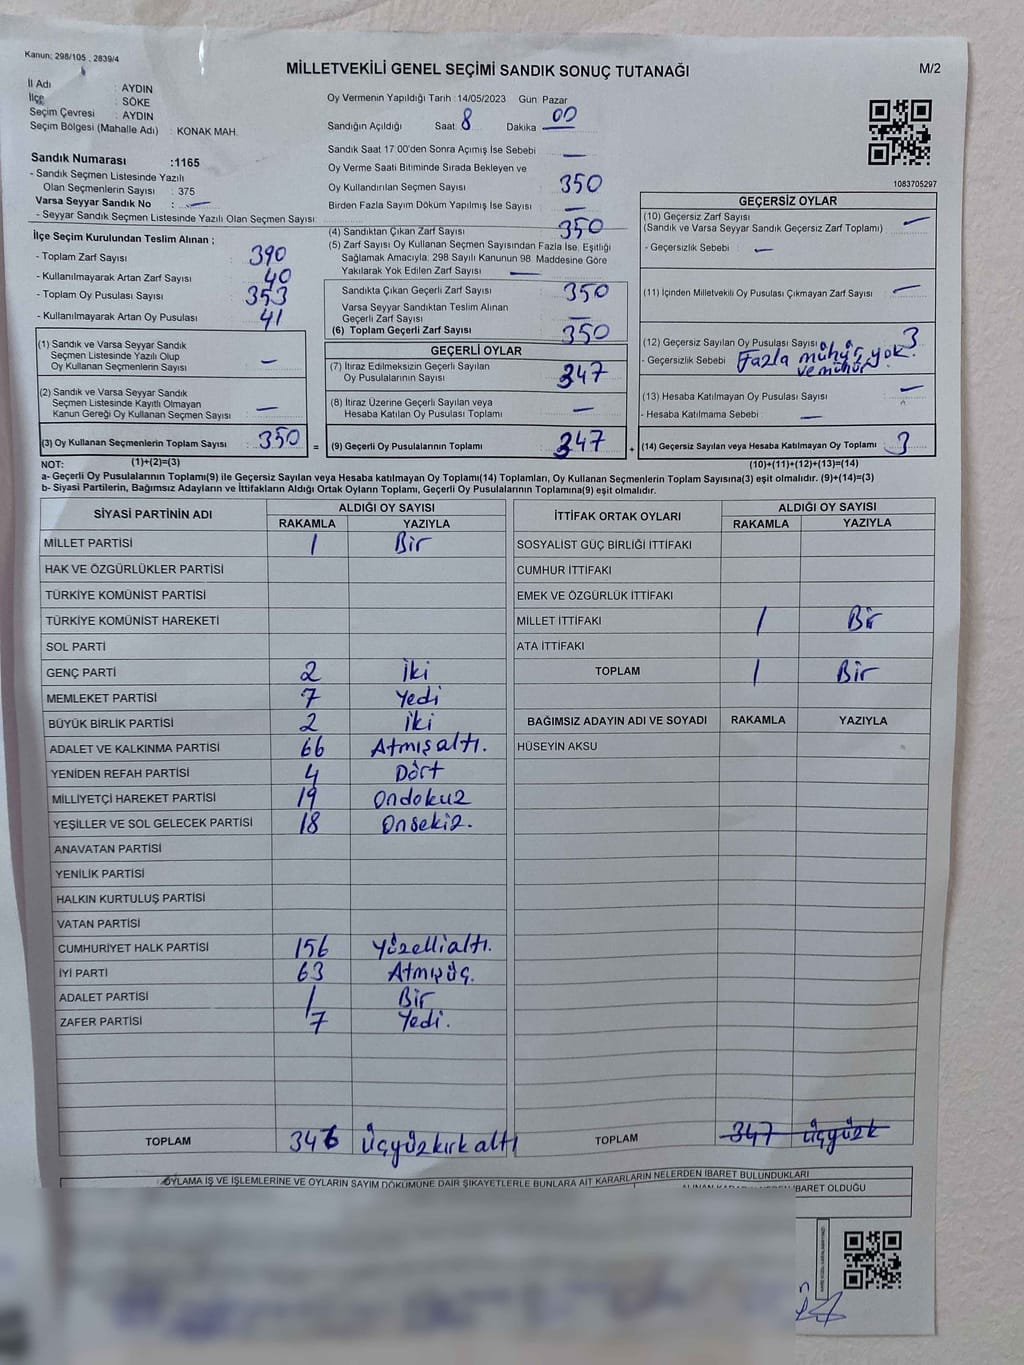 Kanun: 298/105 , 2839/4
MİLLETVEKİLİ GENEL SEÇİMİ SANDIK SONUÇ TUTANAĞI
M/2
İl Adı : AYDIN
İlçe : SÖKE
Seçim Çevresi : AYDIN
Seçim Bölgesi (Mahalle Adı) : KONAK MAH.
Sandık Numarası :1165
- Sandık Seçmen Listesinde Yazılı
Olan Seçmenlerin Sayısı : 375
Varsa Seyyar Sandık No : —
- Seyyar Sandık Seçmen Listesinde Yazılı Olan Seçmen Sayısı:
İlçe Seçim Kurulundan Teslim Alınan ;
- Toplam Zarf Sayısı : 390
- Kullanılmayarak Artan Zarf Sayısı : 40
- Toplam Oy Pusulası Sayısı : 353
- Kullanılmayarak Artan Oy Pusulası : 41
(1) Sandık ve Varsa Seyyar Sandık
Seçmen Listesinde Yazılı Olup
Oy Kullanan Seçmenlerin Sayısı —
(2) Sandık ve Varsa Seyyar Sandık
Seçmen Listesinde Kayıtlı Olmayan
Kanun Gereği Oy Kullanan Seçmen Sayısı —
(3) Oy Kullanan Seçmenlerin Toplam Sayısı : 350 =
(1)+(2)=(3)
Oy Vermenin Yapıldığı Tarih :14/05/2023 Gün: Pazar
Sandığın Açıldığı Saat: 8 Dakika : 00
Sandık Saat 17:00'den Sonra Açımış İse Sebebi —
Oy Verme Saati Bitiminde Sırada Bekleyen ve
Oy Kullandırılan Seçmen Sayısı 350
Birden Fazla Sayım Döküm Yapılmış İse Sayısı —
(4) Sandıktan Çıkan Zarf Sayısı 350
(5) Zarf Sayısı Oy Kullanan Seçmen Sayısından Fazla İse, Eşitliği
Sağlamak Amacıyla; 298 Sayılı Kanunun 98. Maddesine Göre
Yakılarak Yok Edilen Zarf Sayısı —
Sandıkta Çıkan Geçerli Zarf Sayısı 350
Varsa Seyyar Sandıktan Teslim Alınan
Geçerli Zarf Sayısı —
(6) Toplam Geçerli Zarf Sayısı 350
GEÇERLİ OYLAR
(7) İtiraz Edilmeksizin Geçerli Sayılan
Oy Pusulalarının Sayısı 347
(8) İtiraz Üzerine Geçerli Sayılan veya
Hesaba Katılan Oy Pusulası Toplamı —
(9) Geçerli Oy Pusulalarının Toplamı 347 +
1083705297
GEÇERSİZ OYLAR
(10) Geçersiz Zarf Sayısı
(Sandık ve Varsa Seyyar Sandık Geçersiz Zarf Toplamı) —
- Geçersizlik Sebebi : —
(11) İçinden Milletvekili Oy Pusulası Çıkmayan Zarf Sayısı —
(12) Geçersiz Sayılan Oy Pusulası Sayısı 3
- Geçersizlik Sebebi : Fazla mühür yok.
ve mühür
(13) Hesaba Katılmayan Oy Pusulası Sayısı —
- Hesaba Katılmama Sebebi : —
(14) Geçersiz Sayılan veya Hesaba Katılmayan Oy Toplamı 3
(10)+(11)+(12)+(13)=(14)
NOT:
a- Geçerli Oy Pusulalarının Toplamı(9) ile Geçersiz Sayılan veya Hesaba katılmayan Oy Toplamı(14) Toplamları, Oy Kullanan Seçmenlerin Toplam Sayısına(3) eşit olmalıdır. (9)+(14)=(3)
b- Siyasi Partilerin, Bağımsız Adayların ve İttifakların Aldığı Ortak Oyların Toplamı, Geçerli Oy Pusulalarının Toplamına(9) eşit olmalıdır.
SİYASİ PARTİNİN ADI ALDIĞI OY SAYISI
RAKAMLA YAZIYLA
MİLLET PARTİSİ 1 Bir
HAK VE ÖZGÜRLÜKLER PARTİSİ
TÜRKİYE KOMÜNİST PARTİSİ
TÜRKİYE KOMÜNİST HAREKETİ
SOL PARTİ
GENÇ PARTİ 2 İki
MEMLEKET PARTİSİ 7 Yedi
BÜYÜK BİRLİK PARTİSİ 2 İki
ADALET VE KALKINMA PARTİSİ 66 Atmışaltı.
YENİDEN REFAH PARTİSİ 4 Dört
MİLLİYETÇİ HAREKET PARTİSİ 19 Ondokuz
YEŞİLLER VE SOL GELECEK PARTİSİ 18 Onsekiz.
ANAVATAN PARTİSİ
YENİLİK PARTİSİ
HALKIN KURTULUŞ PARTİSİ
VATAN PARTİSİ
CUMHURİYET HALK PARTİSİ 156 Yüzellialtı.
İYİ PARTİ 63 Atmışüç.
ADALET PARTİSİ 1 Bir
ZAFER PARTİSİ 7 Yedi.
TOPLAM 346 Üçyüzkırkaltı
İTTİFAK ORTAK OYLARI ALDIĞI OY SAYISI
RAKAMLA YAZIYLA
SOSYALİST GÜÇ BİRLİĞİ İTTİFAKI
CUMHUR İTTİFAKI
EMEK VE ÖZGÜRLÜK İTTİFAKI
MİLLET İTTİFAKI 1 Bir
ATA İTTİFAKI
TOPLAM 1 Bir
BAĞIMSIZ ADAYIN ADI VE SOYADI RAKAMLA YAZIYLA
HÜSEYİN AKSU
TOPLAM 347 üçyüzk
OYLAMA İŞ VE İŞLEMLERİNE VE OYLARIN SAYIM DÖKÜMÜNE DAİR ŞİKAYETLERLE BUNLARA AİT KARARLARIN NELERDEN İBARET BULUNDUKLARI
İBARET OLDUĞU